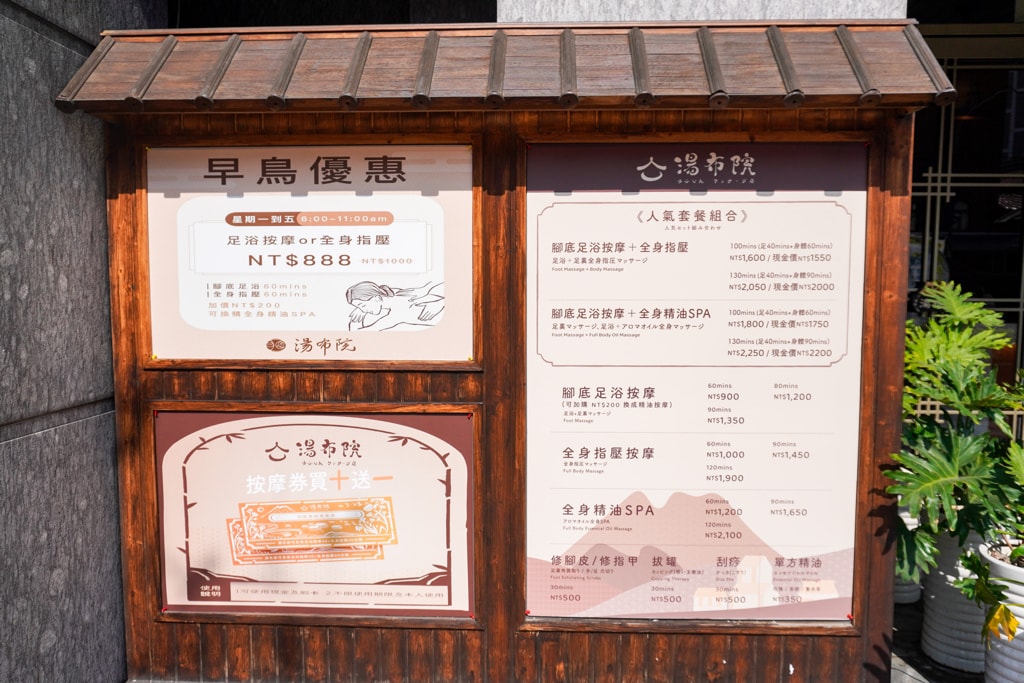 早鳥優惠
星期一到五 8:00~11:00am
足浴按摩or全身指壓
NT$888 NT$1000
腳底足浴60mins
全身指壓60mins
加價NT$200
可換購全身精油SPA
湯布院
湯布院
按摩券買十送一
使用
湯布院
《人氣套餐組合》
人気セット組み合わせ
腳底足浴按摩＋全身指壓
足浴＋足裏全身指圧マッサージ
Foot Massage + Body Massage
100mins (足40mins+身體60mins)
NT$1,600 / 現金價NT$1550
130mins (足40mins+身體90mins)
NT$2,050 / 現金價NT$2000
腳底足浴按摩＋全身精油SPA
足裏マッサージ, 足浴＋アロマオイル全身マッサージ
Foot Massage + Full Body Oil Massage
100mins (足40mins+身體60mins)
NT$1,800 / 現金價NT$1750
130mins (足40mins+身體90mins)
NT$2,250 / 現金價NT$2200
腳底足浴按摩
(可加購 NT$200 換成精油按摩)
足浴+足裏マッサージ
Foot Massage
60mins 80mins
NT$900 NT$1,200
90mins
NT$1,350
全身指壓按摩
全身指圧マッサージ
Full Body Massage
60mins 90mins
NT$1,000 NT$1,450
120mins
NT$1,900
全身精油SPA
アロマオイル全身SPA
Full Body Essential Oil Massage
60mins 90mins
NT$1,200 NT$1,650
120mins
NT$2,100
修腳皮/修指甲 拔罐 刮痧 單方精油
Foot Exfoliating Scrubs Cupping Therapy Gua Sha Essential Oil Massage
30mins 30mins 30mins
NT$500 NT$500 NT$500 NT$350